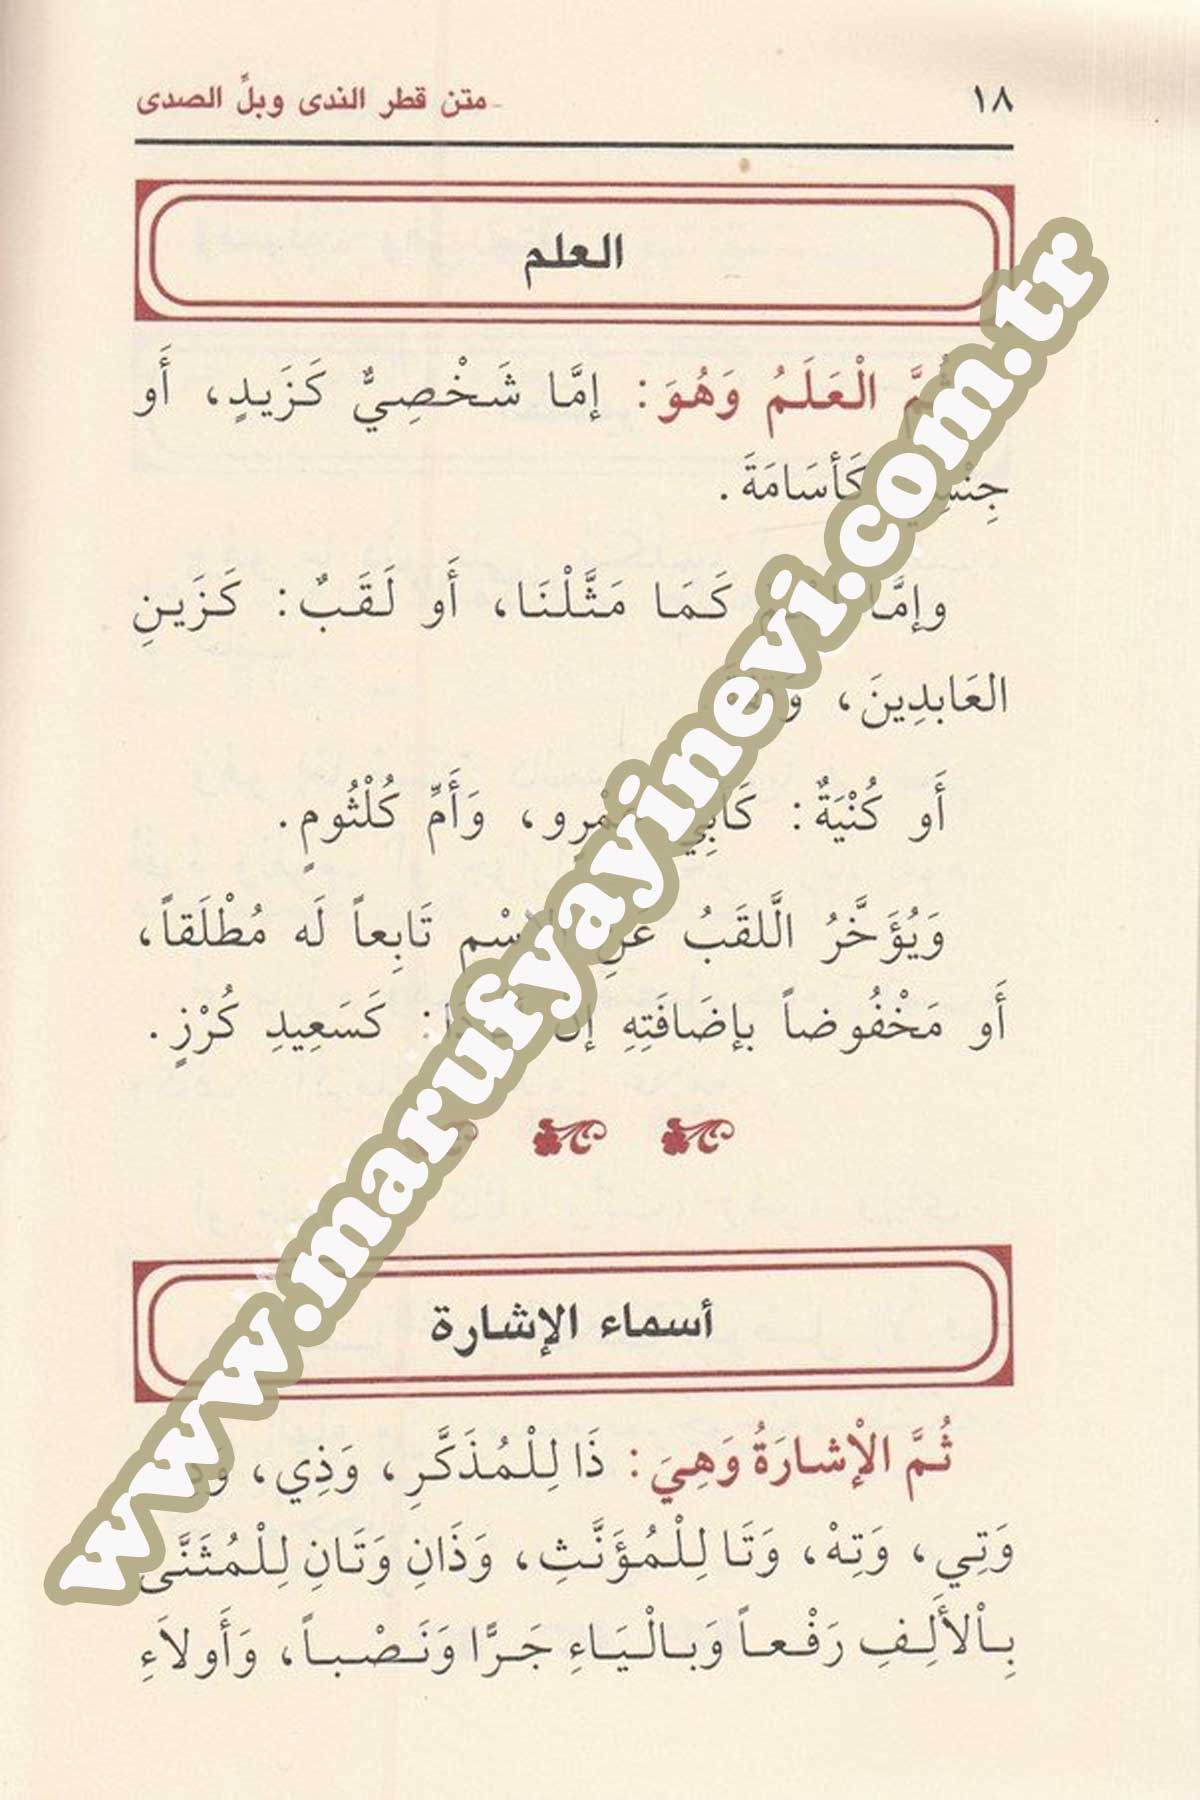 ١٨
متن قطر الندى وبلِّ الصدى
العلم
ثُمَّ الْعَلَمُ وَهُوَ: إمَّا شَخْصِيٌّ كَزَيدٍ، أَو
كَأسَامَةَ.
وإمَّا كَمَا مَثَّلْنَا، أَو لَقَبٌ: كَزَينِ
العَابدِينَ،
أَو كُنْيَةٌ: كَأَبِي عَمْرٍو، وَأَمِّ كُلْثُومٍ.
وَيُؤَخَّرُ الَّلقَبُ عَنِ الاسْمِ تَابِعاً لَه مُطْلَقاً،
أَو مَخْفُوضاً بإضَافَتِهِ إن كَسَعِيدِ كُرْزٍ.
أسماء الإشارة
ثُمَّ الْإشارَةُ وَهِيَ: ذَا لِلْمُذَكَّرِ، وَذِي،
وَتِي، وَتِهْ، وَتَا لِلْمُؤَنَّثِ، وَذَانِ وَتَانِ لِلْمُثَنَّى
بِالْأَلِفِ رَفْعاً وَبالْيَاءِ جَرًّا وَنَصْباً، وَأَولاَءِ
www.marufyayinevi.com.tr